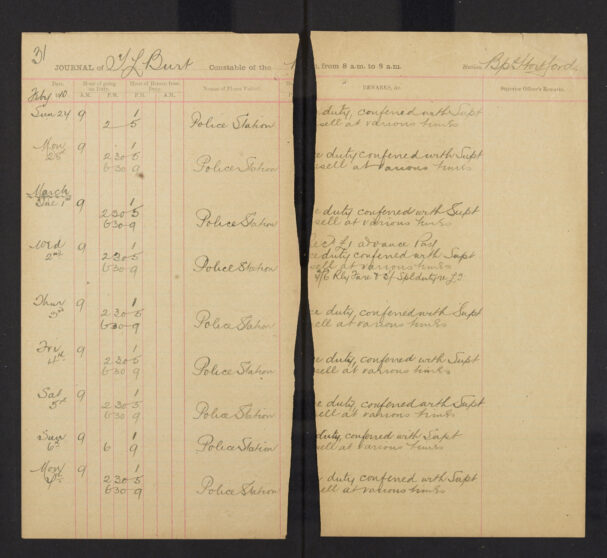 31
JOURNAL of T L Burt Constable of the , from 8 a.m. to 8 a.m. Station Bps Hertford
Date. Hour of going on Duty. Hour of Return from Duty. Names of Places Visited. REMARKS, &c. Superior Officer's Remarks.
A.M. P.M. P.M. A.M.
Feby
Sun 9 1 duty, conferred with Supt
2 5 Police Station sell at various times
Mon 9 1
28th 2 30 5 duty conferred with Supt
6 30 9 Police Station sell at various times
March
Tue 1st 9 1
2 30 5 duty conferred with Supt
6 30 9 Police Station sell at various times
Wed 9 1 £1 advance Pay
2nd 2 30 5 duty conferred with Supt
6 30 9 Police Station sell at various times
Rly Fare & Spl duty
Thur 9 1
3rd 2 30 5 duty conferred with Supt
6 30 9 Police Station sell at various times
Fri 9 1
4th 2 30 5 duty, conferred with Supt
6 30 9 Police Station sell at various times
Sat 9 1
5th 2 30 5 duty, conferred with Supt
6 30 9 Police Station sell at various times
Sun 9 1 duty, conferred with Supt
6th 6 9 Police Station sell at various times
Mon 9 1
7th 2 30 5 duty conferred with Supt
6 30 9 Police Station sell at various times